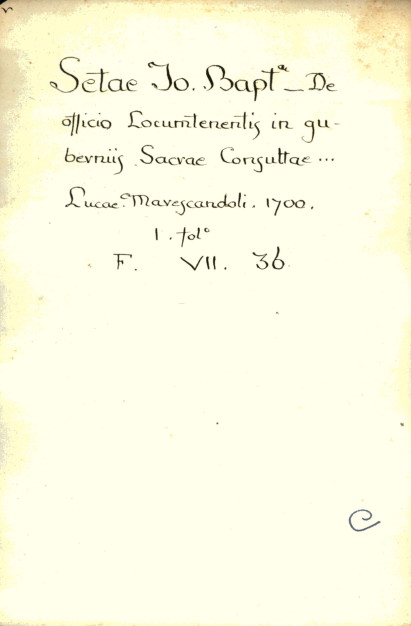 Setae Jo. Bapt.ª — De
officio Locumtenentis in gu-
berniis Sacrae Consultae ...
Lucae. Marescandoli. 1700.
1. folº
F. VII. 36
C